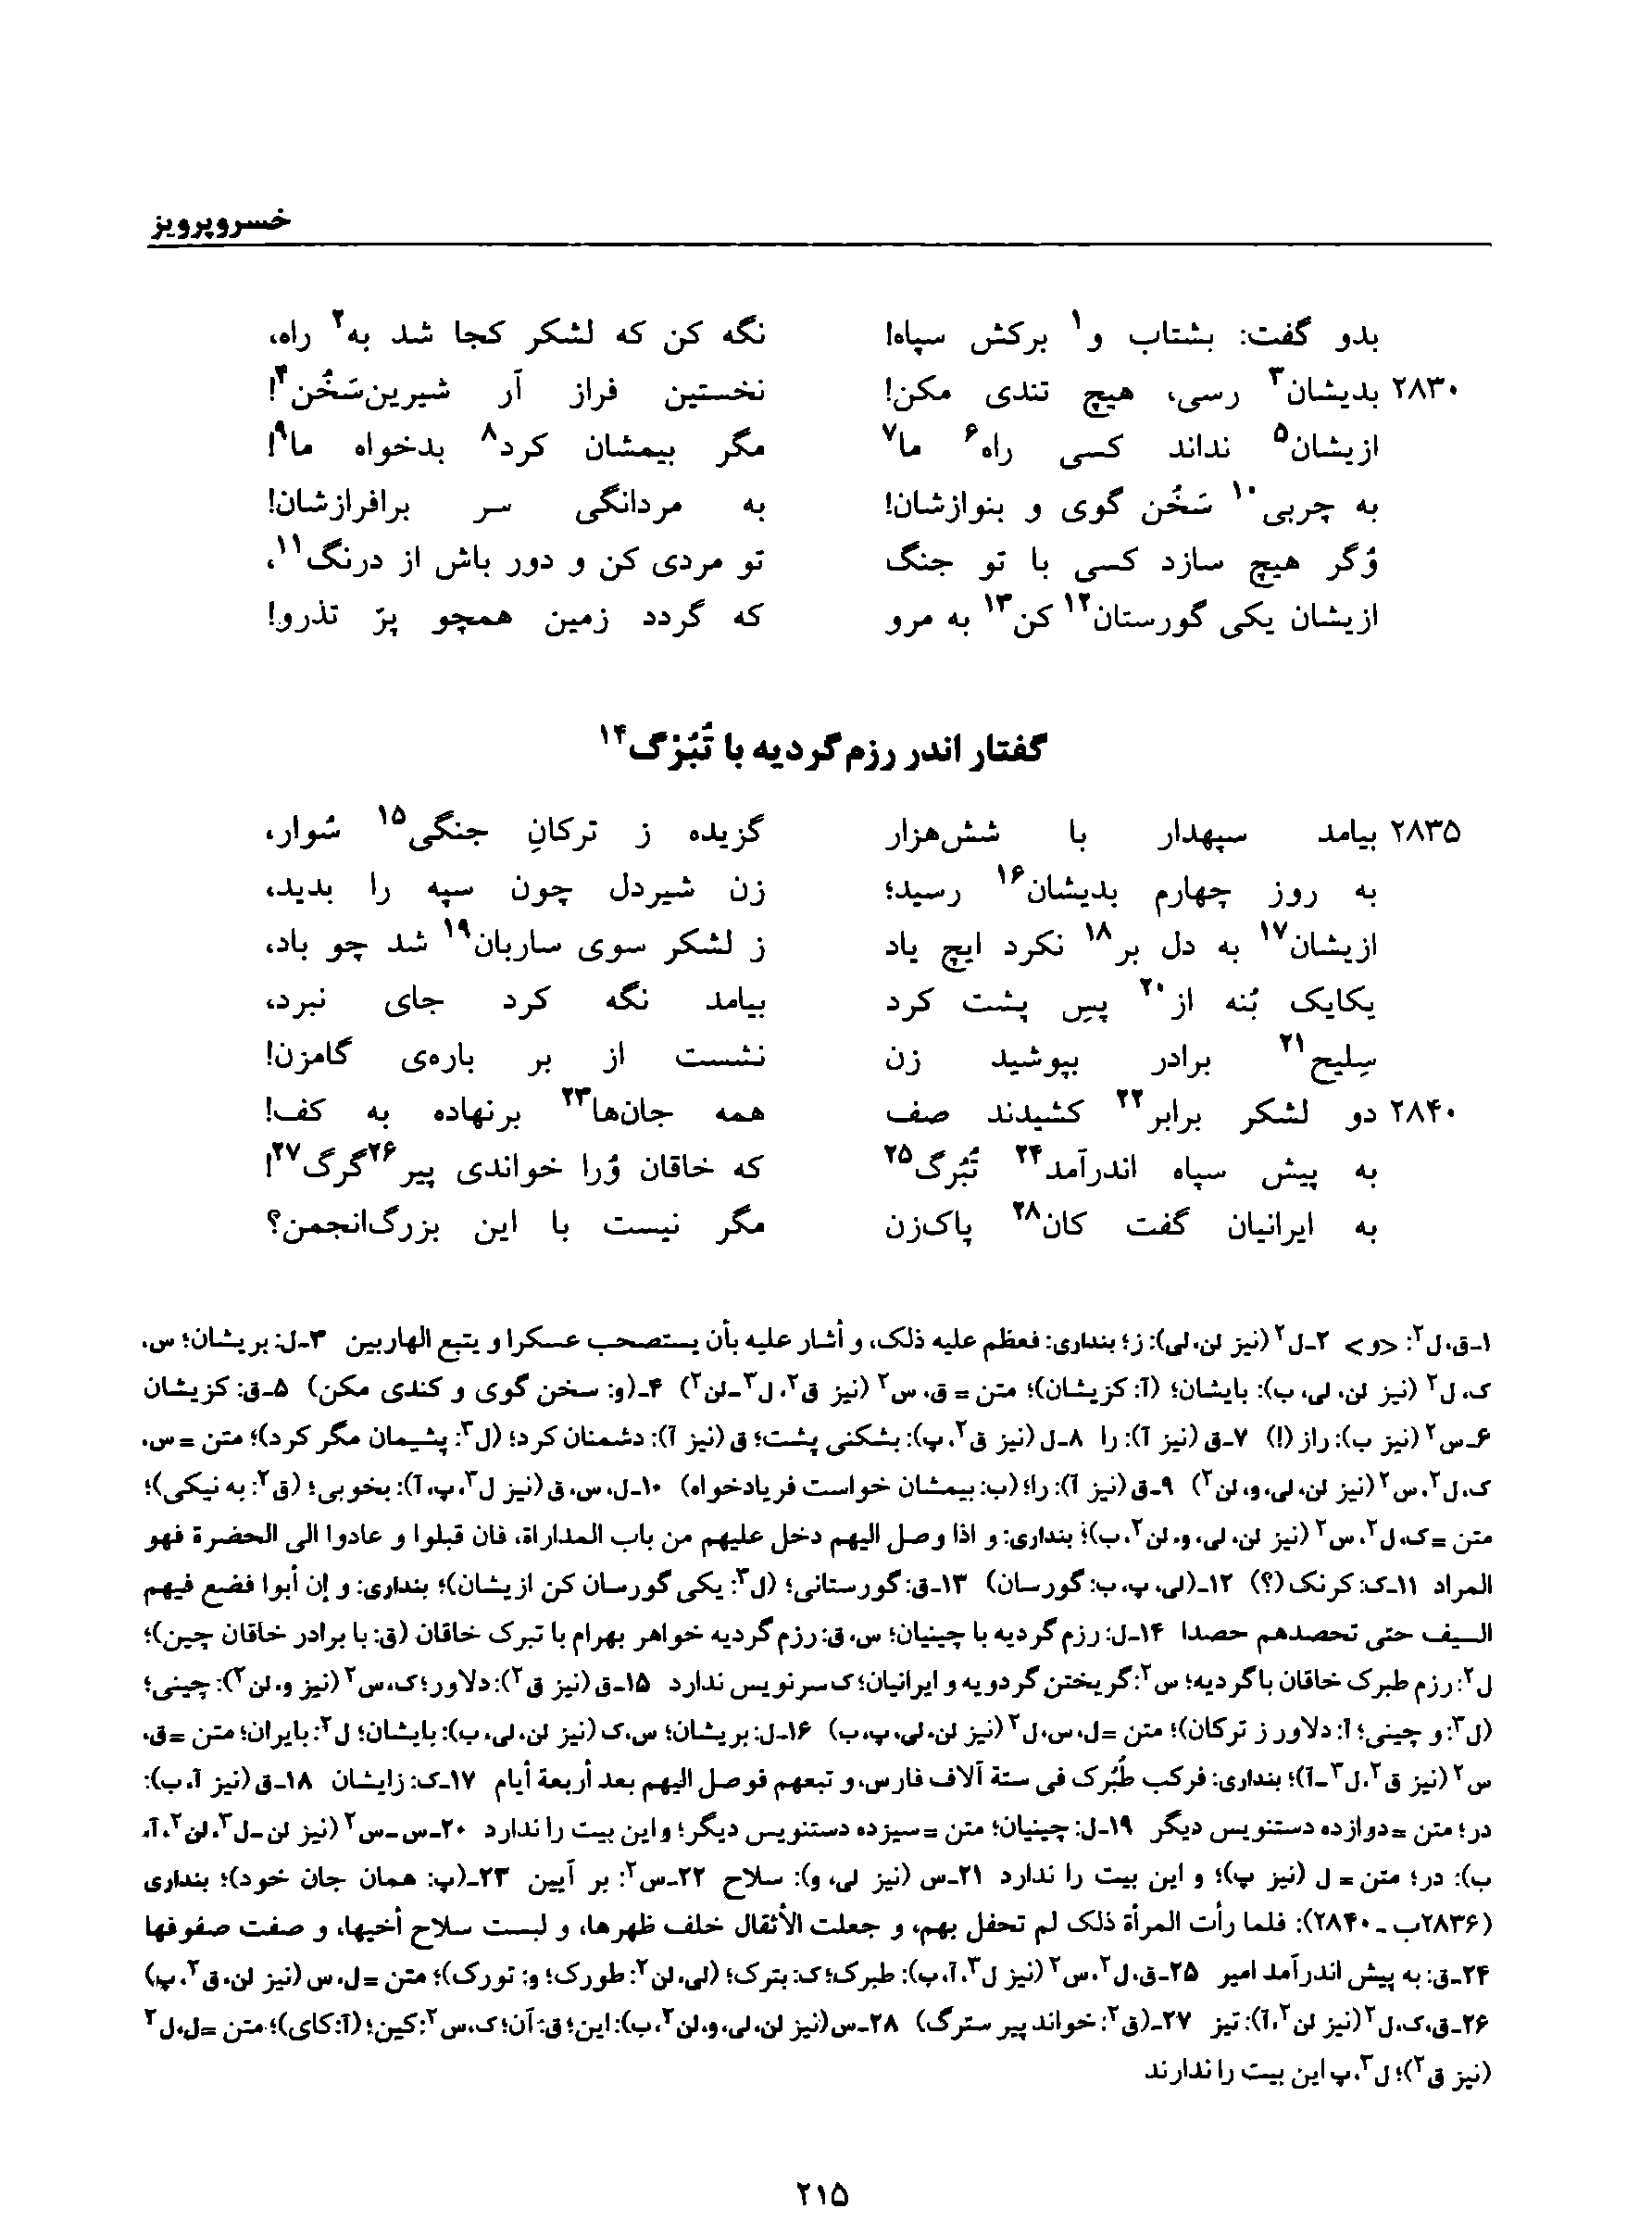 خسروپرویز
بدو گفت: بشتاب و۱ برکش سپاه! نگه کن که لشکر کجا شد به۲ راه،
۲۸۳۰ بدیشان۳ رسی، هیچ تندی مکن! نخستین فراز آر شیرین‌سَخُن۴!
ازیشان۵ نداند کسی راه۶ ما۷ مگر بیمشان کرد۸ بدخواه ما۹!
به چربی۱۰ سَخُن گوی و بنوازشان! به مردانگی سر برافرازشان!
وُگر هیچ سازد کسی با تو جنگ تو مردی کن و دور باش از درنگ۱۱،
ازیشان یکی گورستان۱۲ کن۱۳ به مرو که گردد زمین همچو پرّ تذرو!
گفتار اندر رزم گردیه با تُبُرْگ۱۴
۲۸۳۵ بیامد سپهدار با شش‌هزار گزیده ز ترکانِ جنگی۱۵ سُوار،
به روز چهارم بدیشان۱۶ رسید؛ زن شیردل چون سپه را بدید،
ازیشان۱۷ به دل بر۱۸ نکرد ایچ یاد ز لشکر سوی ساربان۱۹ شد چو باد،
یکایک بُنه از۲۰ پسِ پشت کرد بیامد نگه کرد جای نبرد،
سِلیح۲۱ برادر بپوشید زن نشست از بر باره‌ی گامزن!
۲۸۴۰ دو لشکر برابر۲۲ کشیدند صف همه جان‌ها۲۳ برنهاده به کف!
به پیش سپاه اندرآمد۲۴ تُبُرگ۲۵ که خاقان وُرا خواندی پیر۲۶ گرگ۲۷!
به ایرانیان گفت کان۲۸ پاک‌زن مگر نیست با این بزرگ‌انجمن؟
۱ـ ق، ل۲: <و> ۲ـ ل۲ (نیز لن، لی): ز؛ بنداری: فعظم علیه ذلک، و أشار علیه بأن یستصحب عسکرا و یتبع الهاربین ۳ـ ل: بریشان؛ س،
ک، ل۲ (نیز لن، لی، ب): بایشان؛ (آ: کزیشان)؛ متن = ق، س۲ (نیز ق۲، ل۳ـ لن۲) ۴ـ (و: سخن گوی و کندی مکن) ۵ـ ق: کزیشان
۶ـ س۲ (نیز ب): راز (!) ۷ـ ق (نیز آ): را ۸ـ ل (نیز ق۲، پ): بشکنی پشت؛ ق (نیز آ): دشمنان کرد؛ (ل۳: پشیمان مگر کرد)؛ متن = س،
ک، ل۲، س۲ (نیز لن، لی، و، لن۲) ۹ـ ق (نیز آ): را؛ (ب: بیمشان خواست فریادخواه) ۱۰ـ ل، س، ق (نیز ل۳، پ، آ): بخوبی؛ (ق۲: به نیکی)؛
متن = ک، ل۲، س۲ (نیز لن، لی، و، لن۲، ب)؛ بنداری: و اذا وصل الیهم دخل علیهم من باب المداراة، فان قبلوا و عادوا الی الحضرة فهو
المراد ۱۱ـ ک: کرنک (؟) ۱۲ـ (لی، پ، ب: گورسان) ۱۳ـ ق: گورستانی؛ (ل۳: یکی گورسان کن ازیشان)؛ بنداری: و إن أبوا فضع فیهم
السیف حتی تحصدهم حصدا ۱۴ـ ل: رزم گردیه با چینیان؛ س، ق: رزم گردیه خواهر بهرام با تبرک خاقان (ق: با برادر خاقان چین)؛
ل۲: رزم طبرک خاقان باگردیه؛ س۲: گریختن گردویه و ایرانیان؛ ک سرنویس ندارد ۱۵ـ ق (نیز ق۲): دلاور؛ ک، س۲ (نیز و، لن۲): چینی؛
(ل۳: و چینی؛ آ: دلاور ز ترکان)؛ متن = ل، س، ل۲ (نیز لن، لی، پ، ب) ۱۶ـ ل: بریشان؛ س، ک (نیز لن، لی، ب): بایشان؛ ل۲: بایران؛ متن = ق،
س۲ (نیز ق۲، ل۳ـ آ)؛ بنداری: فرکب طُبُرک فی ستة آلاف فارس، و تبعهم فوصل الیهم بعد أربعة أیام ۱۷ـ ک: زایشان ۱۸ـ ق (نیز آ، ب):
در؛ متن = دوازده دستنویس دیگر ۱۹ـ ل: چینیان؛ متن = سیزده دستنویس دیگر؛ و این بیت را ندارد ۲۰ـ س ـ س۲ (نیز لن ـ ل۳، لن۲، آ،
ب): در؛ متن = ل (نیز پ)؛ و این بیت را ندارد ۲۱ـ س (نیز لی، و): سلاح ۲۲ـ س۲: بر آیین ۲۳ـ (پ: همان جان خود)؛ بنداری
(۲۸۳۶ب ـ ۲۸۴۰): فلما رأت المرأة ذلک لم تحفل بهم، و جعلت الأثقال خلف ظهرها، و لبست سلاح أخیها، و صفت صفوفها
۲۴ـ ق: به پیش اندرآمد امیر ۲۵ـ ق، ل۲، س۲ (نیز ل۳، آ، ب): طبرک؛ ک: بترک؛ (لی، لن۲: طورک؛ و: تورک)؛ متن = ل، س (نیز لن، ق۲، پ)
۲۶ـ ق، ک، ل۲ (نیز لن۲، آ): تیز ۲۷ـ (ق۲: خواند پیر سترگ) ۲۸ـ س (نیز لن، لی، و، لن۲، ب): این؛ ق: آن؛ ک، س۲: کین؛ (آ: کای)؛ متن = ل، ل۲
(نیز ق۲)؛ ل۳، پ این بیت را ندارند
۲۱۵